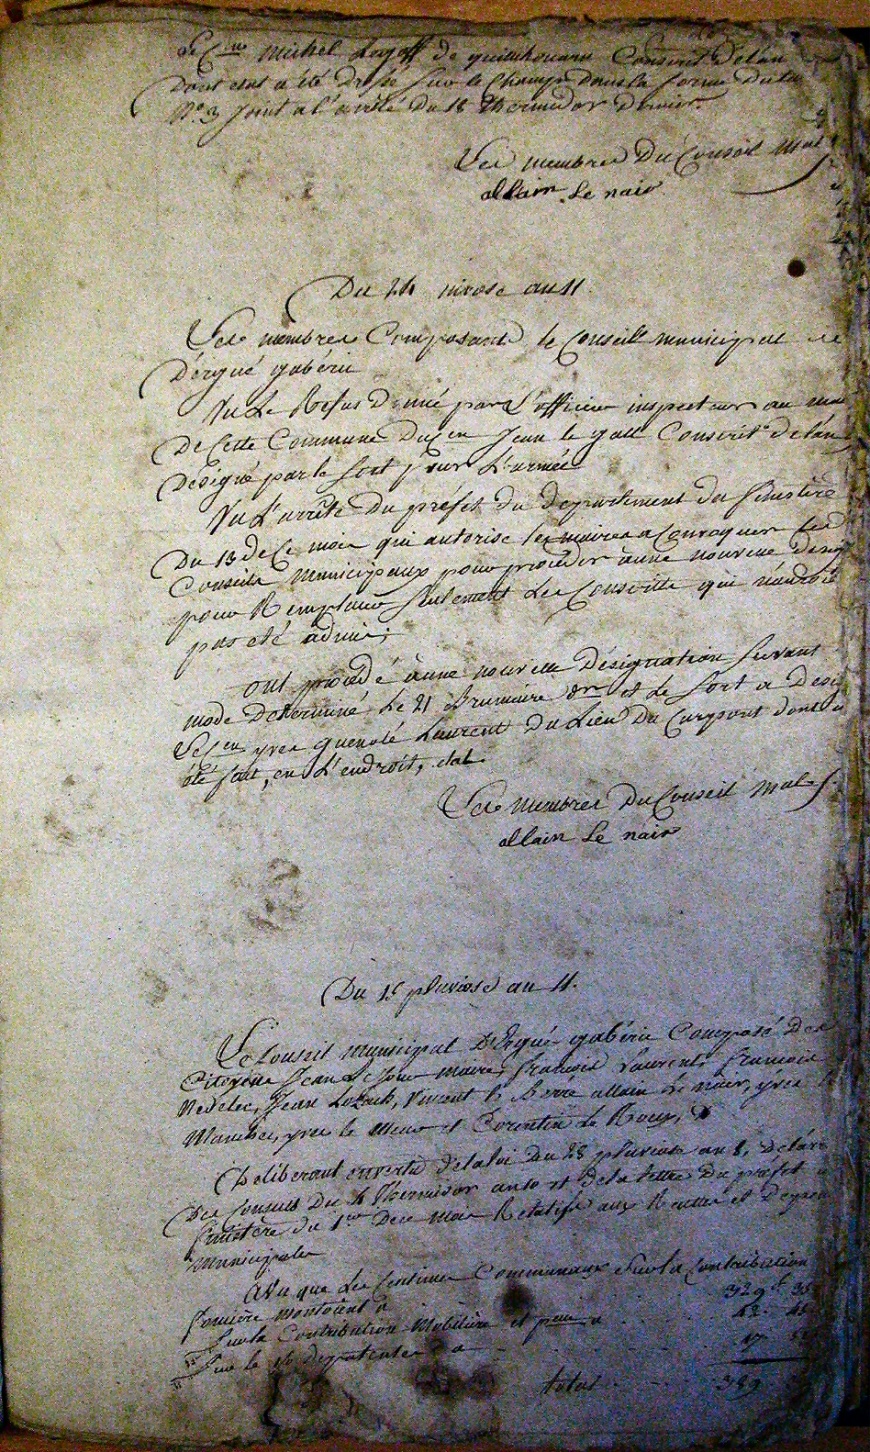 Le Cen Michel Lozoff de quimhouarn Conscrit de l'an
Dont etat a été Dressé sur le Champ Dans la forme du
N° 3 Joint a l'arreté Du 18 thermidor dernier.
Les membres Du Conseil mal
allain Le nair
Du 24 nivose an 11.
Les membres Composant le Conseill municipal de
D'ergué gabéric
Vu Le Refus Donné par L'officier inspecteur au
De Cette Commune Du Cen Jean le gall Conscrit de l'an
Designé par le Sort pour L'armée
Vu L'arrêté Du préfet du departement du finistère
Du 13 de Ce mois qui autorise les maires a Convoquer Les
Conseils municipaux pour procéder a une nouvelle
pour Remplacer Seulement Les Conscrits qui n'auroit
pas eté admis;
ont procédé a une nouvelle Désignation Suivant
mode Determiné Le 21 Brumaire dr et Le Sort a
Le Cen yves guenolé Laurent Du Lieu Du Carpont dont a
été fait, en L'endroit, etat.
Les membres Du Conseil mal
allain Le nair
Du 15 pluviose an 11.
Le Conseil municipal D'Ergué gabéric Composé Des
Citoyens Jean Le Jour maire, françois Laurent, françois
Nedelec, Jean Lozach, Vincent le Berre allain Le nair, yves
Manchec, yves le meur et Corentin Le Roux,
Deliberant en vertu de la loi Du 28 pluviose an 8, De
Des Consuls Du 4 thermidor an 10 et De la lettre Du préfet
finistère du 1er De ce mois Relatifs aux Recettes et Depenses
Municipales
a Vu que Les Centimes Communaux Sur la Contribution
foncière montoient a 329
Sur la Contribution Mobilière et a 42
Sur le des patentes a 17
total 389